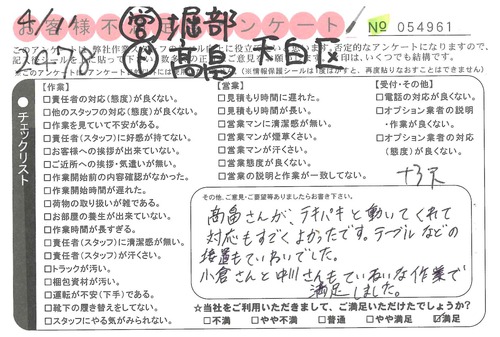 4/11 営 堀部
お客様不満足度アンケート! № 054961
作 髙畠 天白区
チェックリスト
【作業】
□責任者の対応(態度)が良くない。
□他のスタッフの対応(態度)が良くない。
□作業を見ていて不安がある。
□責任者(スタッフ)に好感が持てない。
□お客様への挨拶が出来ていない。
□ご近所への挨拶・気遣いが無い。
□作業開始前の内容確認がなかった。
□作業開始時間が遅れた。
□荷物の取り扱いが雑である。
□お部屋の養生が出来ていない。
□作業時間が長すぎる。
□責任者(スタッフ)に清潔感が無い。
□責任者(スタッフ)が汗くさい。
□トラックが汚い。
□梱包資材が汚い。
□運転が不安(下手)である。
□靴下の履き替えをしてない。
□スタッフにやる気がみられない。
【営業】
□見積もり時間に遅れた。
□見積もり時間が長い。
□営業マンに清潔感が無い。
□営業マンが煙草くさい。
□営業マンが汗くさい。
□営業態度が良くない。
□営業の説明と作業が一致してない。
【受付・その他】
□電話の対応が良くない。
□オプション業者の説明
・作業が良くない。
□オプション業者の対応
(態度)が良くない。
その他、ご意見・ご要望等ありましたらお書き下さい。
髙畠さんが、テキパキと動いてくれて
対応もすごくよかったです。テーブルなどの
設置もていねいでした。
小倉さんと中川さんもていねいな作業で
満足しました。
☆当社をご利用いただきまして、ご満足いただけたでしょうか?
□不満 □やや不満 □普通 □やや満足 ☑満足